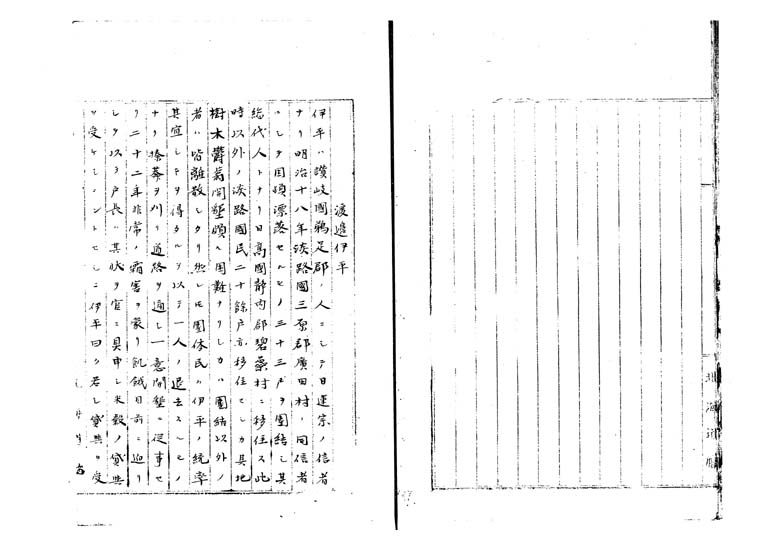 渡邉伊平
伊平ハ讃岐國鵜足郡ノ人ニシテ日蓮宗ノ信者
ナリ明治十八年淡路國三原郡廣田村ノ同信者
ニシテ困頓漂落セルモノ三十三戸ヲ團結シ其
総代人トナリ日高國静内郡碧蘂村ニ移住ス此
時以外ノ淡路國民二十餘戸亦移住セシカ其地
樹木欝蒼開墾頗ル困難ナリシカハ團結以外ノ
者ハ皆離散シタリ然レモ團体民ハ伊平ノ統率
其宜シキヲ得タルヲ以テ一人ノ退去スルモノ
ナク榛莽ヲ刈リ道路ヲ通シ一意開墾ニ従事セ
リ二十二年非常ノ霜害ヲ蒙リ飢餓目前ニ迫リ
シヲ以テ戸長ハ其状ヲ官ニ具申シ米穀ノ貸與
ヲ受ケシメントセシニ伊平曰ク若シ貸與ヲ受
北海道廳